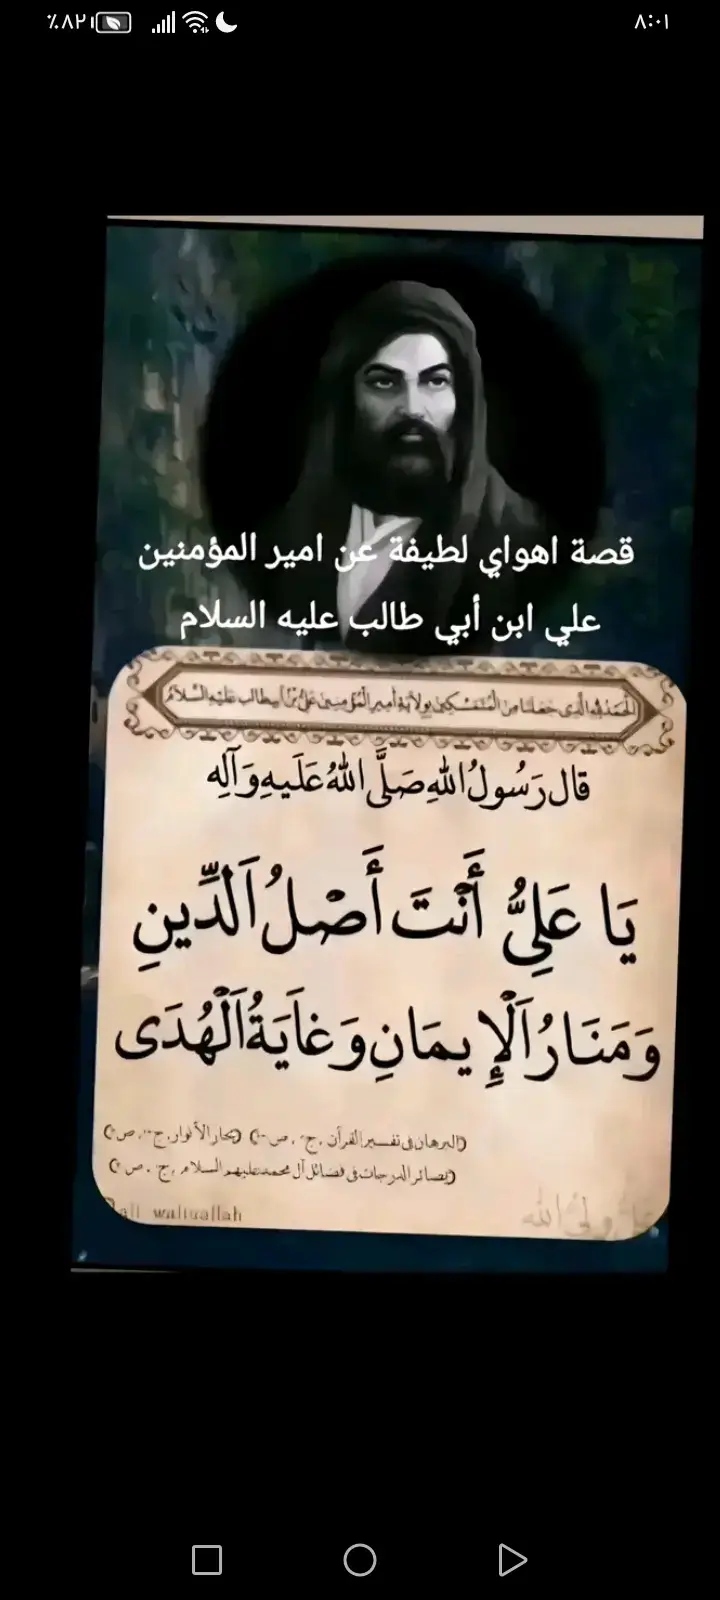 ٪٨٢
٨:٠١
قصة اهواي لطيفة عن امير المؤمنين
علي ابن أبي طالب عليه السلام
الحمد لله الذي جعلنا من المتمسكين بولاية أمير المؤمنين علي بن أبي طالب عليه السلام
قال رَسُولُ اللهِ صَلَّى اللهُ عَلَيهِ وَآلِه
يَا عَلِيُّ أَنْتَ أَصْلُ اَلدِّينِ
وَمَنَارُ اَلْإِيمَانِ وَغَايَةُ اَلْهُدَى
البرهان في تفسير القرآن ,ج ,ص بحار الأنوار,ج ,ص
بصائر الدرجات في فضائل آل محمد عليهم السلام ,ج ,ص
ali waliuallah
علي ولي الله